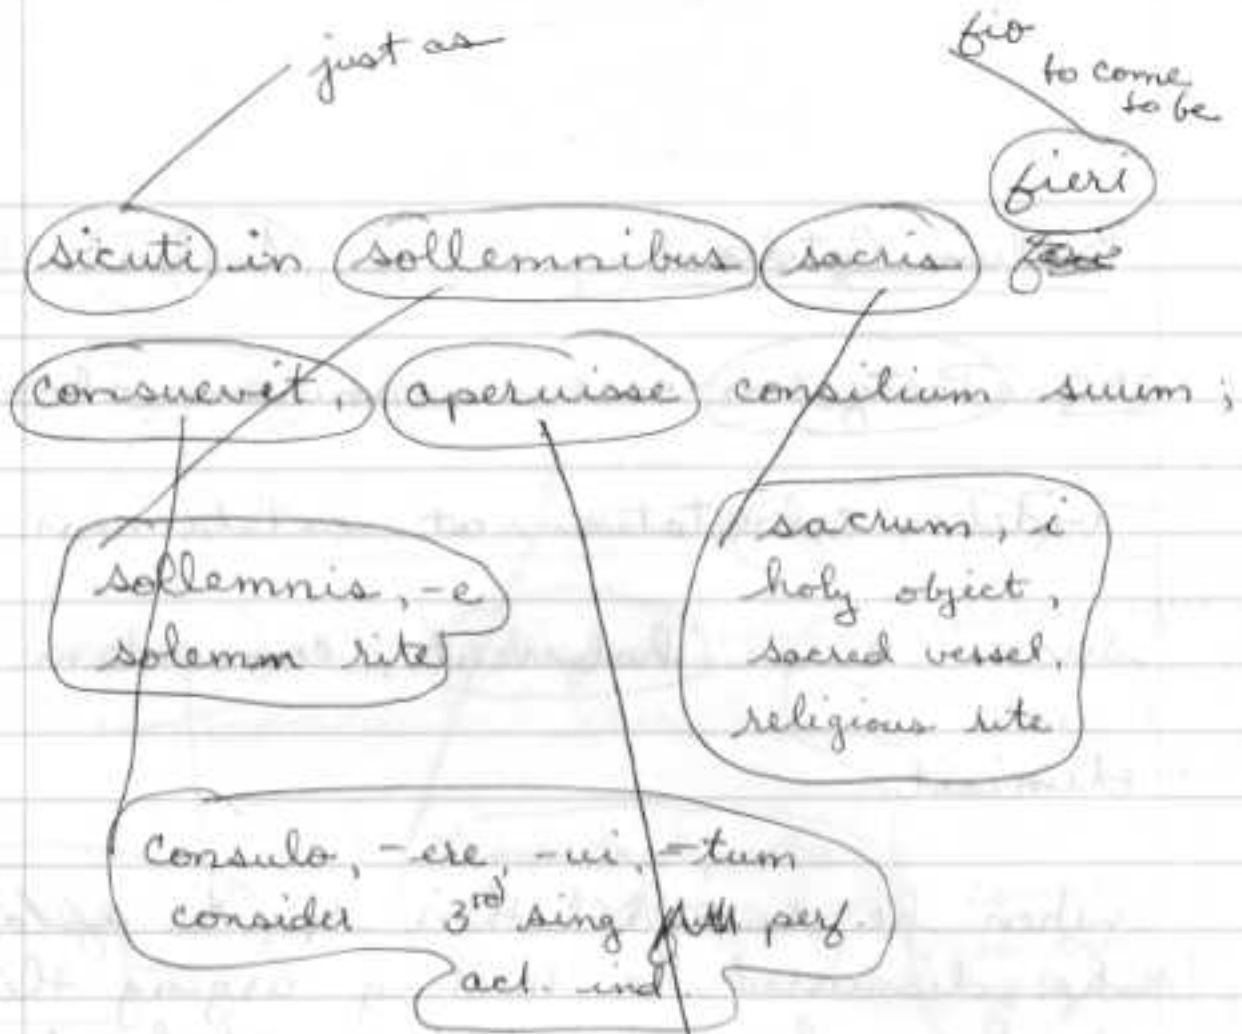 just as
fio
to come
to be
fieri
sicuti in sollemnibus sacris
consuevit, aperuisse consilium suum;
sollemnis, -e
solemn rite
sacrum, i
holy object,
sacred vessel,
religious rite
Consulo, -ere, -ui, -tum
consider 3rd sing perf.
act. ind.